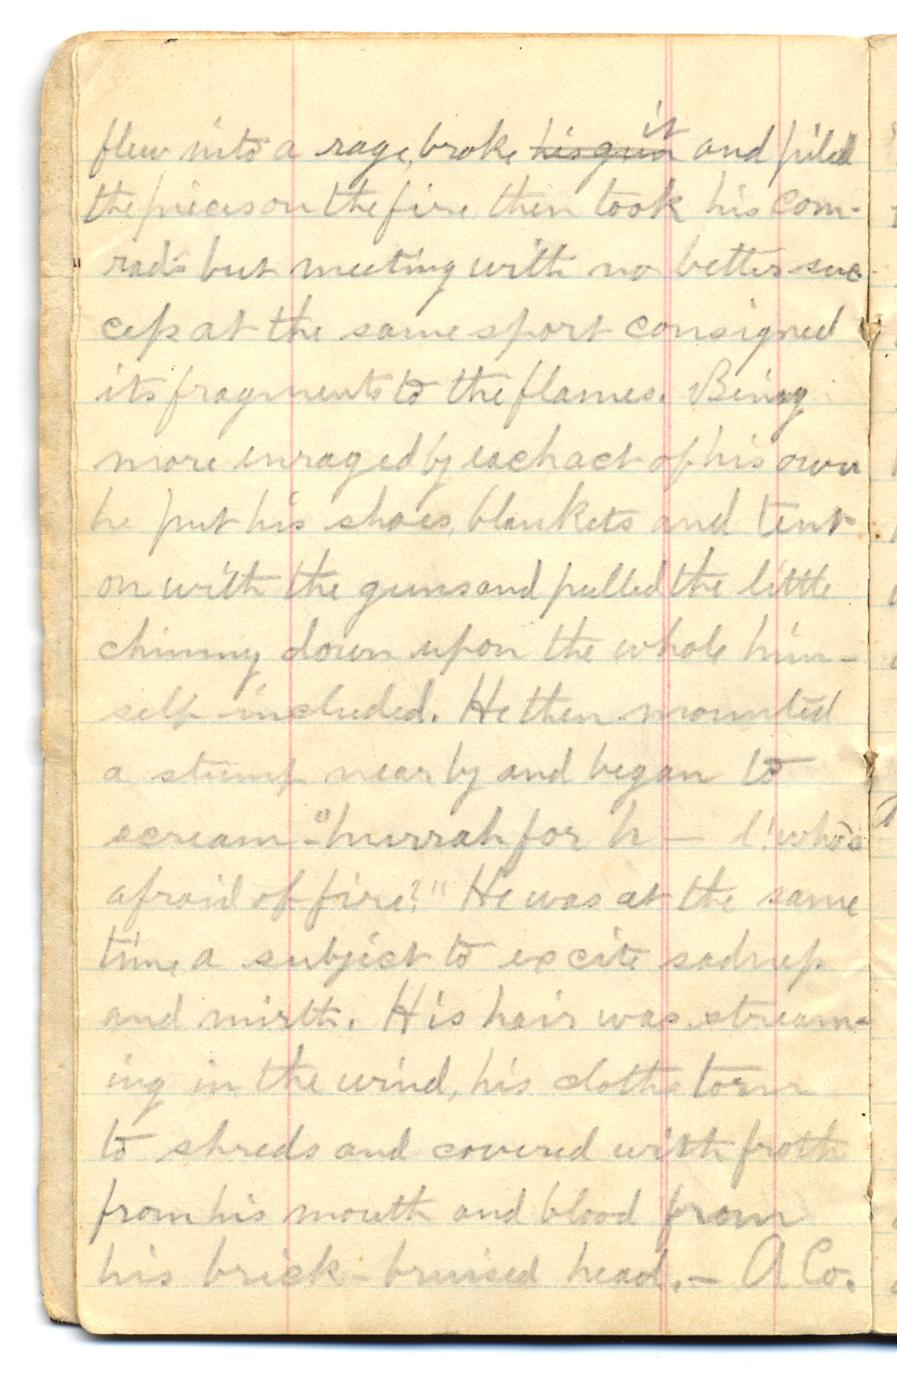 flew into a rage, broke ~~his gun~~ it and piled
the pieces on the fire then took his com-
rads but meeting with no better suc-
cess at the same sport consigned
its fragments to the flames. Being
more enraged by each act of his own
he put his shoes, blankets and tent
on with the guns and pulled the little
chimny down upon the whole him-
self included. He then mounted
a stump near by and began to
scream - "hurrah for h— l! who's
afraid of fire?" He was at the same
time a subject to excite sadness
and mirth. His hair was stream-
ing in the wind, his cloths torn
to shreds and covered with froth
from his mouth and blood from
his brick-bruised head. — A Co.